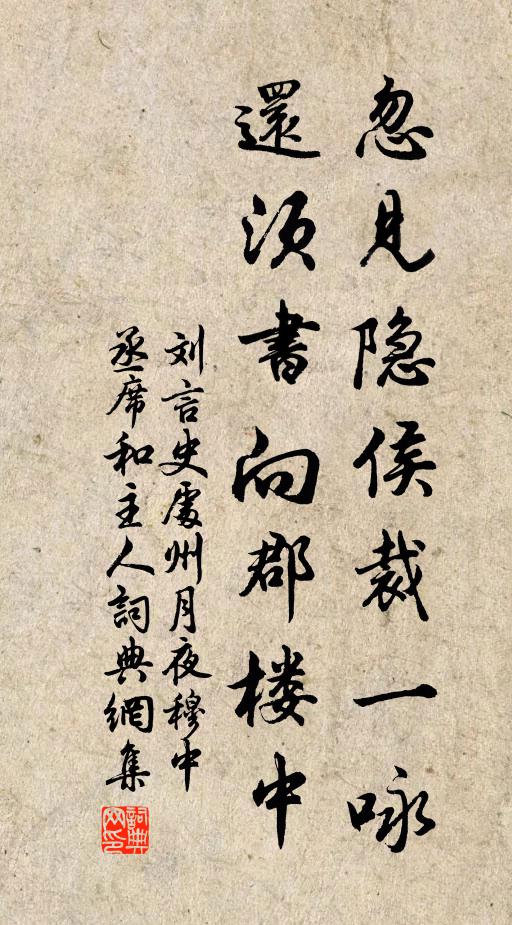 忽見隐侯裁一咏
還須書向郡楼中
刘言史處州月夜穆中
丞席和主人詞典網集
詞典网印